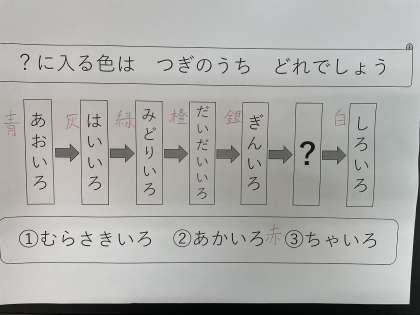 ？に入る色は　つぎのうち　どれでしょう
青
あおいろ
灰
はいいろ
緑
みどりいろ
橙
だいだいいろ
銀
ぎんいろ
?
白
しろいろ
①むらさきいろ　②あかいろ赤　③ちゃいろ